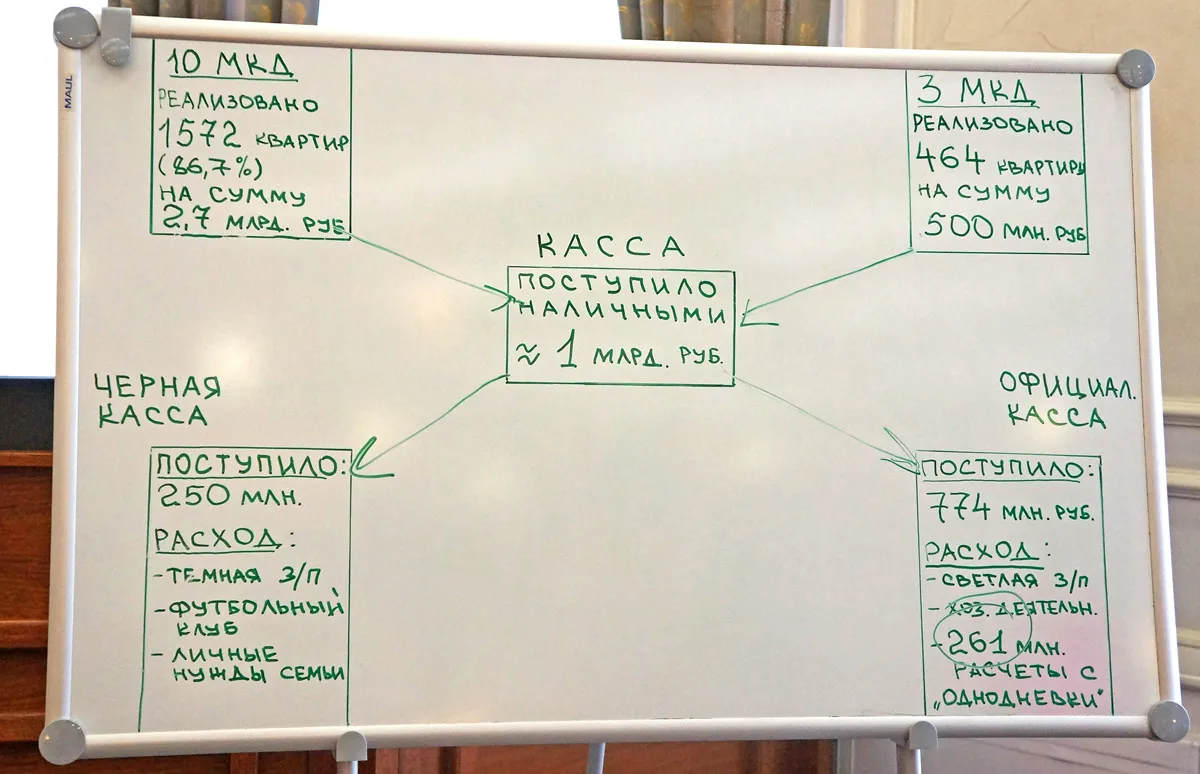 MAUL
10 МКД
РЕАЛИЗОВАНО
1572 КВАРТИР
(86,7%)
НА СУММУ
2,7 МЛРД. РУБ
3 МКД
РЕАЛИЗОВАНО
464 КВАРТИРЫ
НА СУММУ
500 МЛН. РУБ
КАССА
ПОСТУПИЛО
НАЛИЧНЫМИ
≈ 1 МЛРД. РУБ.
ЧЕРНАЯ
КАССА
ПОСТУПИЛО:
250 МЛН.
РАСХОД:
-ТЕМНАЯ З/П
-ФУТБОЛЬНЫЙ
КЛУБ
- ЛИЧНЫЕ
НУЖДЫ СЕМЬИ
ОФИЦИАЛ.
КАССА
ПОСТУПИЛО:
774 МЛН. РУБ.
РАСХОД:
- СВЕТЛАЯ З/П
- ХОЗ. ДЕЯТЕЛЬН.
- 261 МЛН.
РАСЧЕТЫ С
„ОДНОДНЕВКИ"